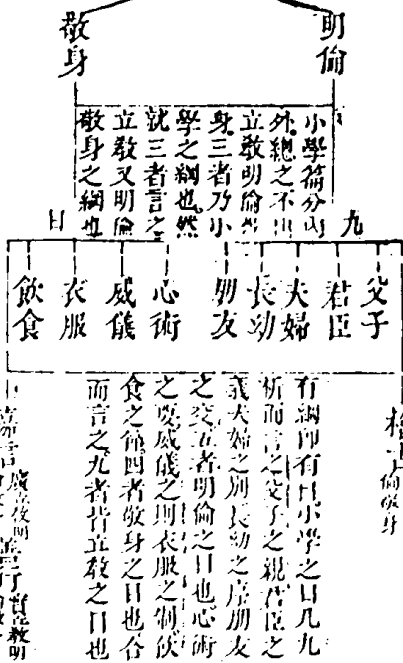 明倫
敬身
小學篇分内
外總之不出
立教明倫敬
身三者乃小
學之綱也然
就三者言之
立教又明倫
敬身之綱也
九
目
父子
君臣
夫婦
長幼
朋友
心術
威儀
衣服
飲食
有綱卽有目小學之目凡九
析而言之父子之親君臣之
義夫婦之別長幼之序朋友
之交五者明倫之目也心術
之要威儀之則衣服之制飲
食之節四者敬身之目也合
而言之九者皆立教之目也
倫敬身
嘉言廣立教明
善行實立教明